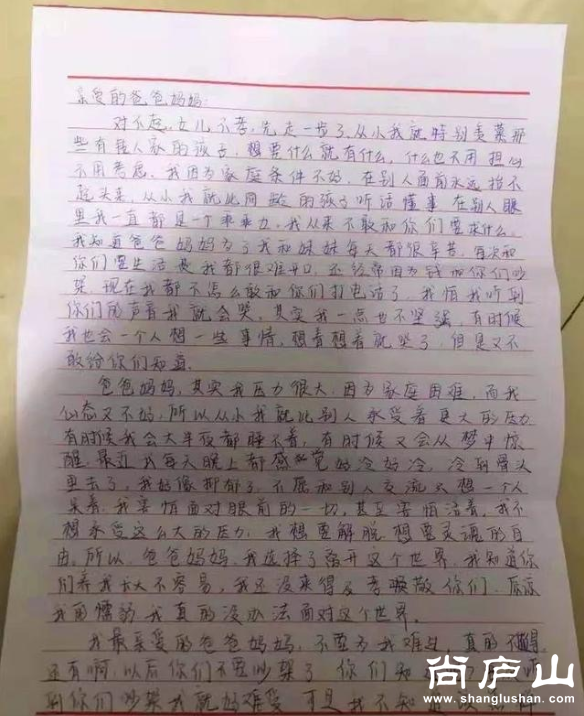 亲爱的爸爸妈妈:
对不起,女儿不孝,先走一步了,从小我就特别羡慕那
些有钱人家的孩子,想要什么就有什么,什么也不用担心
不用考虑,我因为家庭条件不好,在别人面前永远抬不
起头来,从小我就比同龄的孩子听话懂事,在别人眼
里我一直都是一个乖乖女,我从来不敢和你们要求什么,
我知道爸爸妈妈为了我和妹妹每天都很辛苦,每次和
你们要生活费我都很难开口,还经常因为钱和你们吵
架,现在我都不怎么敢和你们打电话了,我怕我听到
你们的声音我就会哭,其实我一点也不坚强,有时候
我也会一个人想一些事情,想着想着就哭了,但是又不
敢给你们知道.
爸爸妈妈,其实我压力很大,因为家庭困难,而我
心态又不好,所以从小我就比别人承受着更大的压力
有时候我会大半夜都睡不着,有时候又会从梦中惊
醒,最近我每天晚上都感觉好冷好冷,冷到骨头
里去了,我好像抑郁了,不愿和别人交流只想一个人
呆着,我害怕面对眼前的一切,甚至害怕活着,我不
想承受这么大的压力,我想要解脱,想要灵魂的自
由,所以,爸爸妈妈,我选择了离开这个世界,我知道你
们养我长大不容易,我还没来得及孝顺你们,原谅
我的懦弱,我真的没办法面对这个世界.
我最亲爱的爸爸妈妈,不要为我难过,真的不值得
还有啊,以后你们不要吵架了,你们知
到你们吵架我就好难受,可是我不知
尚庐山
www.shanglushan.com